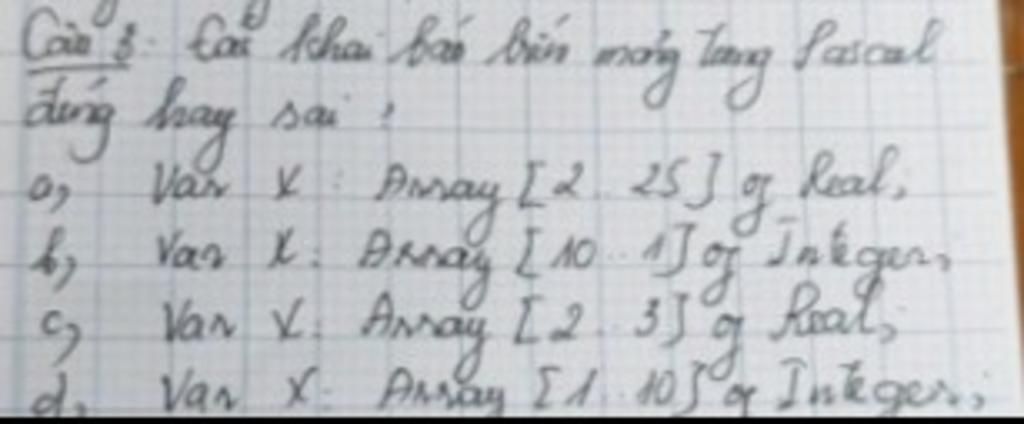 Câu 3: Các khai báo biến mảng trong Pascal
đúng hay sai ?
a, Var X : Array [2 .. 25] of Real;
b, Var X : Array [10 .. 1] of Integer;
c, Var X : Array [2 .. 3] of Real;
d, Var X : Array [1 .. 10] of Integer;